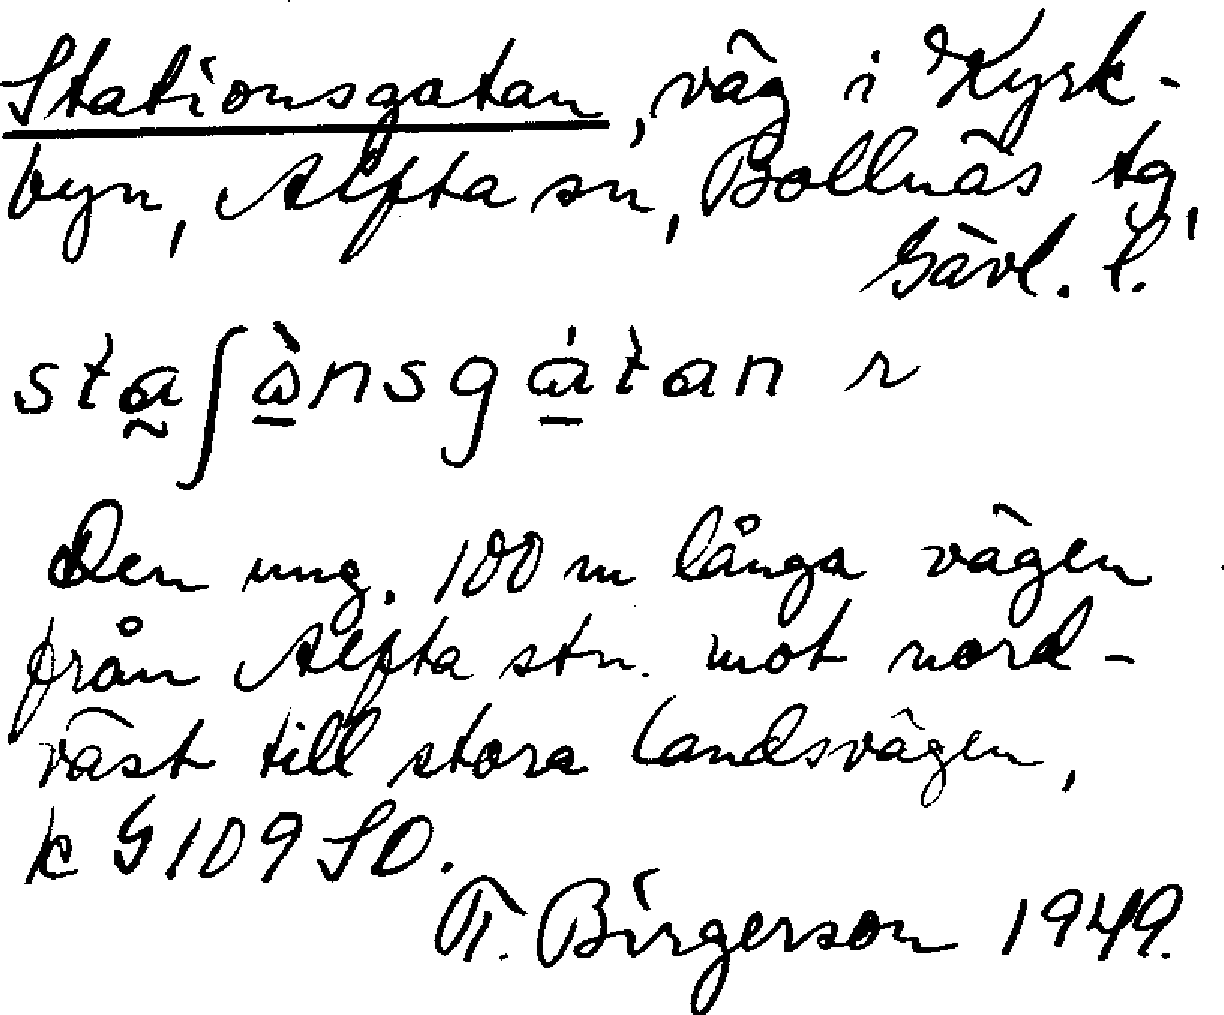 Stationsgatan, väg i Kyrk-
byn, Alfta sn, Bollnäs tg,
Gävl. l.
staʃὼnsgátan
Den ung. 100 m långa vägen
från Alfta stn. mot nord-
väst till stora landsvägen,
k G 109 SO.
T. Birgerson 1949.